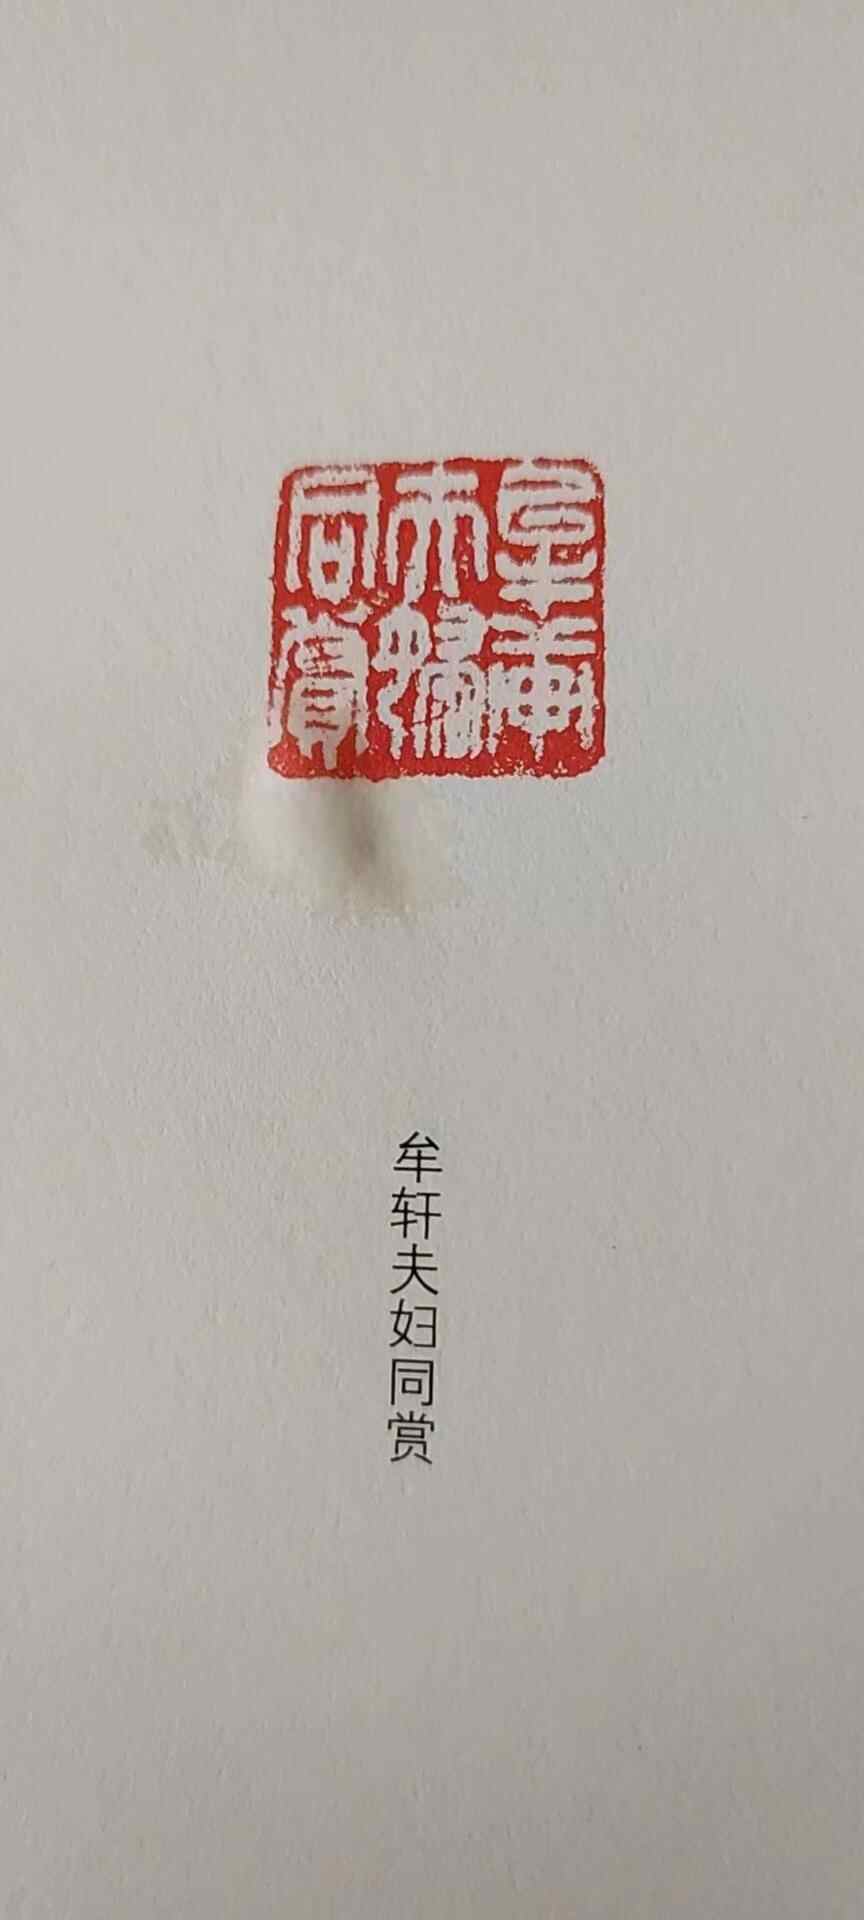 牟軒
夫婦
同賞
牟轩夫妇同赏